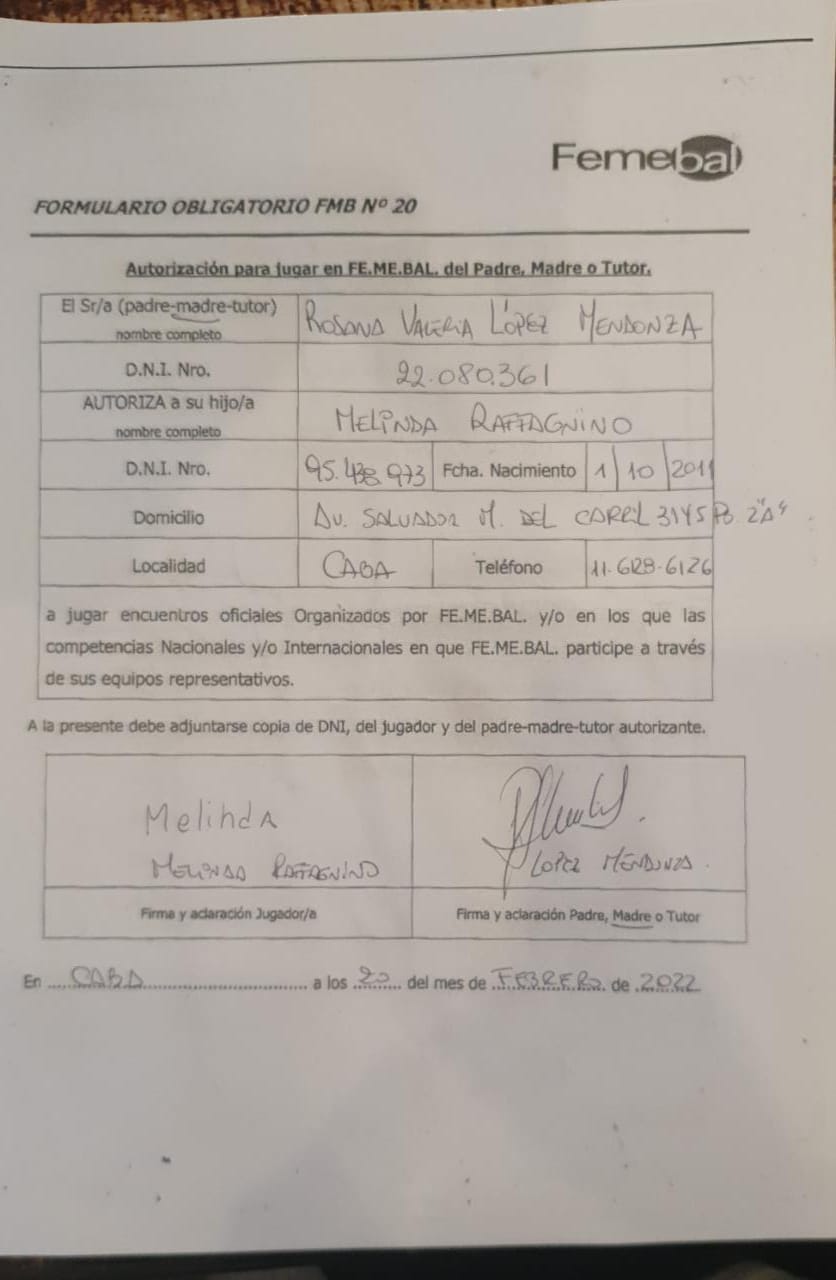 Femebal
FORMULARIO OBLIGATORIO FMB Nº 20
Autorización para jugar en FE.ME.BAL. del Padre, Madre o Tutor.
El Sr/a (padre-madre-tutor)
nombre completo
ROSANA VALERIA LÓPEZ MENDONZA
D.N.I. Nro.
22.080.361
AUTORIZA a su hijo/a
nombre completo
MELINDA RAFFAGNINO
D.N.I. Nro.
95.438.973
Fcha. Nacimiento
1 10 2011
Domicilio
AV. SALVADOR M. DEL CARRIL 3145 "A"
Localidad
CABA
Teléfono
a jugar encuentros oficiales Organizados por FE.ME.BAL. y/o en los que las
competencias Nacionales y/o Internacionales en que FE.ME.BAL. participe a través
de sus equipos representativos.
A la presente debe adjuntarse copia de DNI, del jugador y del padre-madre-tutor autorizante.
Melinda
MELINDA RAFFAGNINO
LOPEZ MENDONZA.
Firma y aclaración Jugador/a
Firma y aclaración Padre, Madre o Tutor
En ..... CABA .................................. a los ..20.. del mes de .FEBRERO. de .2022